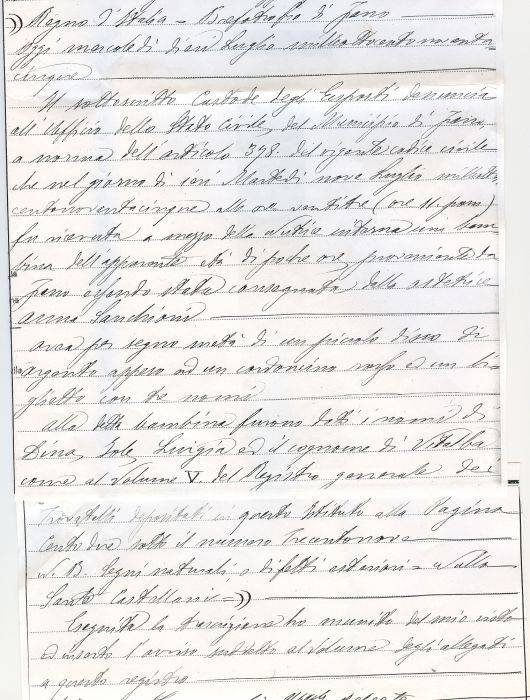 )) Regno d'Italia = Brefotrofio di Fano
Oggi mercoledì dieci Luglio milleottocentonovanta
cinque
Il sottoscritto Custode degli Esposti denuncia
all'Ufficio dello Stato Civile, del Municipio di Fano,
a norma dell'articolo 378. del vigente codice civile
che nel giorno di ieri Martedì nove Luglio milleotto,
centonovantacinque alle ore ventitre (ore 11. pom)
fu ricevuta a mezzo della Nutrice interna una bam
bina dell'apparente età di poche ore proveniente da
Fano essendo stata consegnata dalla ostetrice
Anna Sanchioni
avea per segno metà di un piccolo disco di
argento appeso ad un cordoncino rosso ed un bi-
glietto con tre nomi
Alla detta bambina furono dati i nomi di
Dina, Iole, Luigia ed il cognome di Vitalba
come al volume V. del Registro generale dei
Trovatelli depositati in questo Istituto alla Pagina
Cento due sotto il numero Trecentonove
N. B. Segni naturali, o difetti esteriori = Nulla
Sante Castellani = ))
Eseguita la trascrizione ho munito del mio visto
ed inserto l'avviso suddetto al volume degli allegati
a questo registro